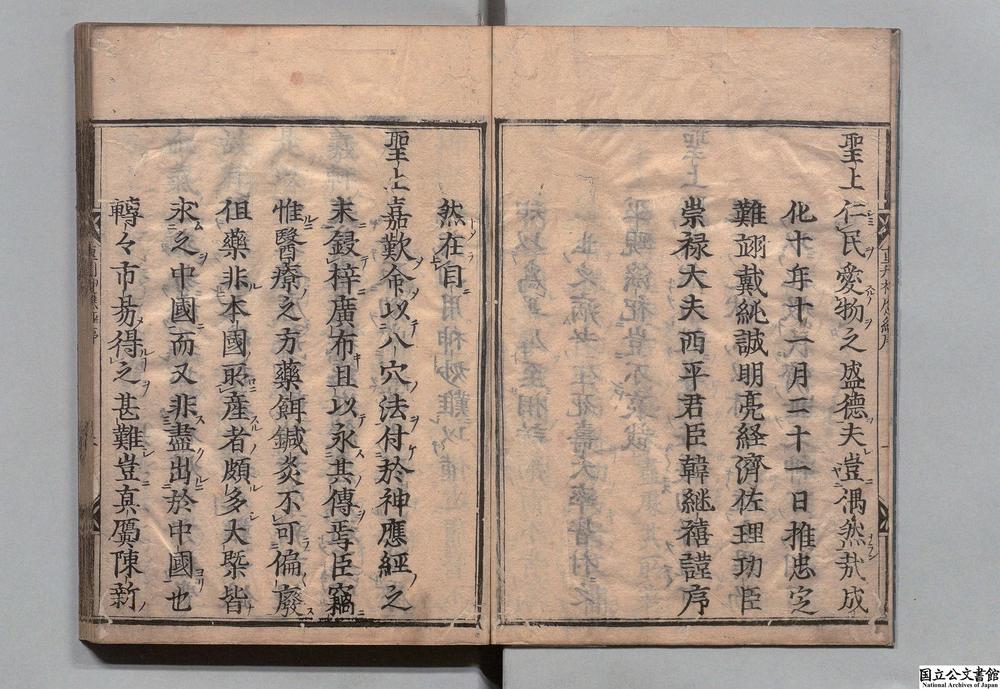 聖上仁民愛物之盛德夫豈偶然哉成
化十年十一月二十一日推忠定
難翊戴純誠明亮経濟佐理功臣
崇禄大夫西平君臣韓継禧謹序
然在目
聖上嘉歎命以八穴法付於神應經之
末鋟梓廣布且以永其傳焉臣竊
惟醫療之方藥餌鍼灸不可偏廢
但藥非本國所産者頗多大槩皆
求之中國而又非盡出於中國也
轉々市易得之甚難豈真贗陳新
国立公文書館
National Archives of Japan